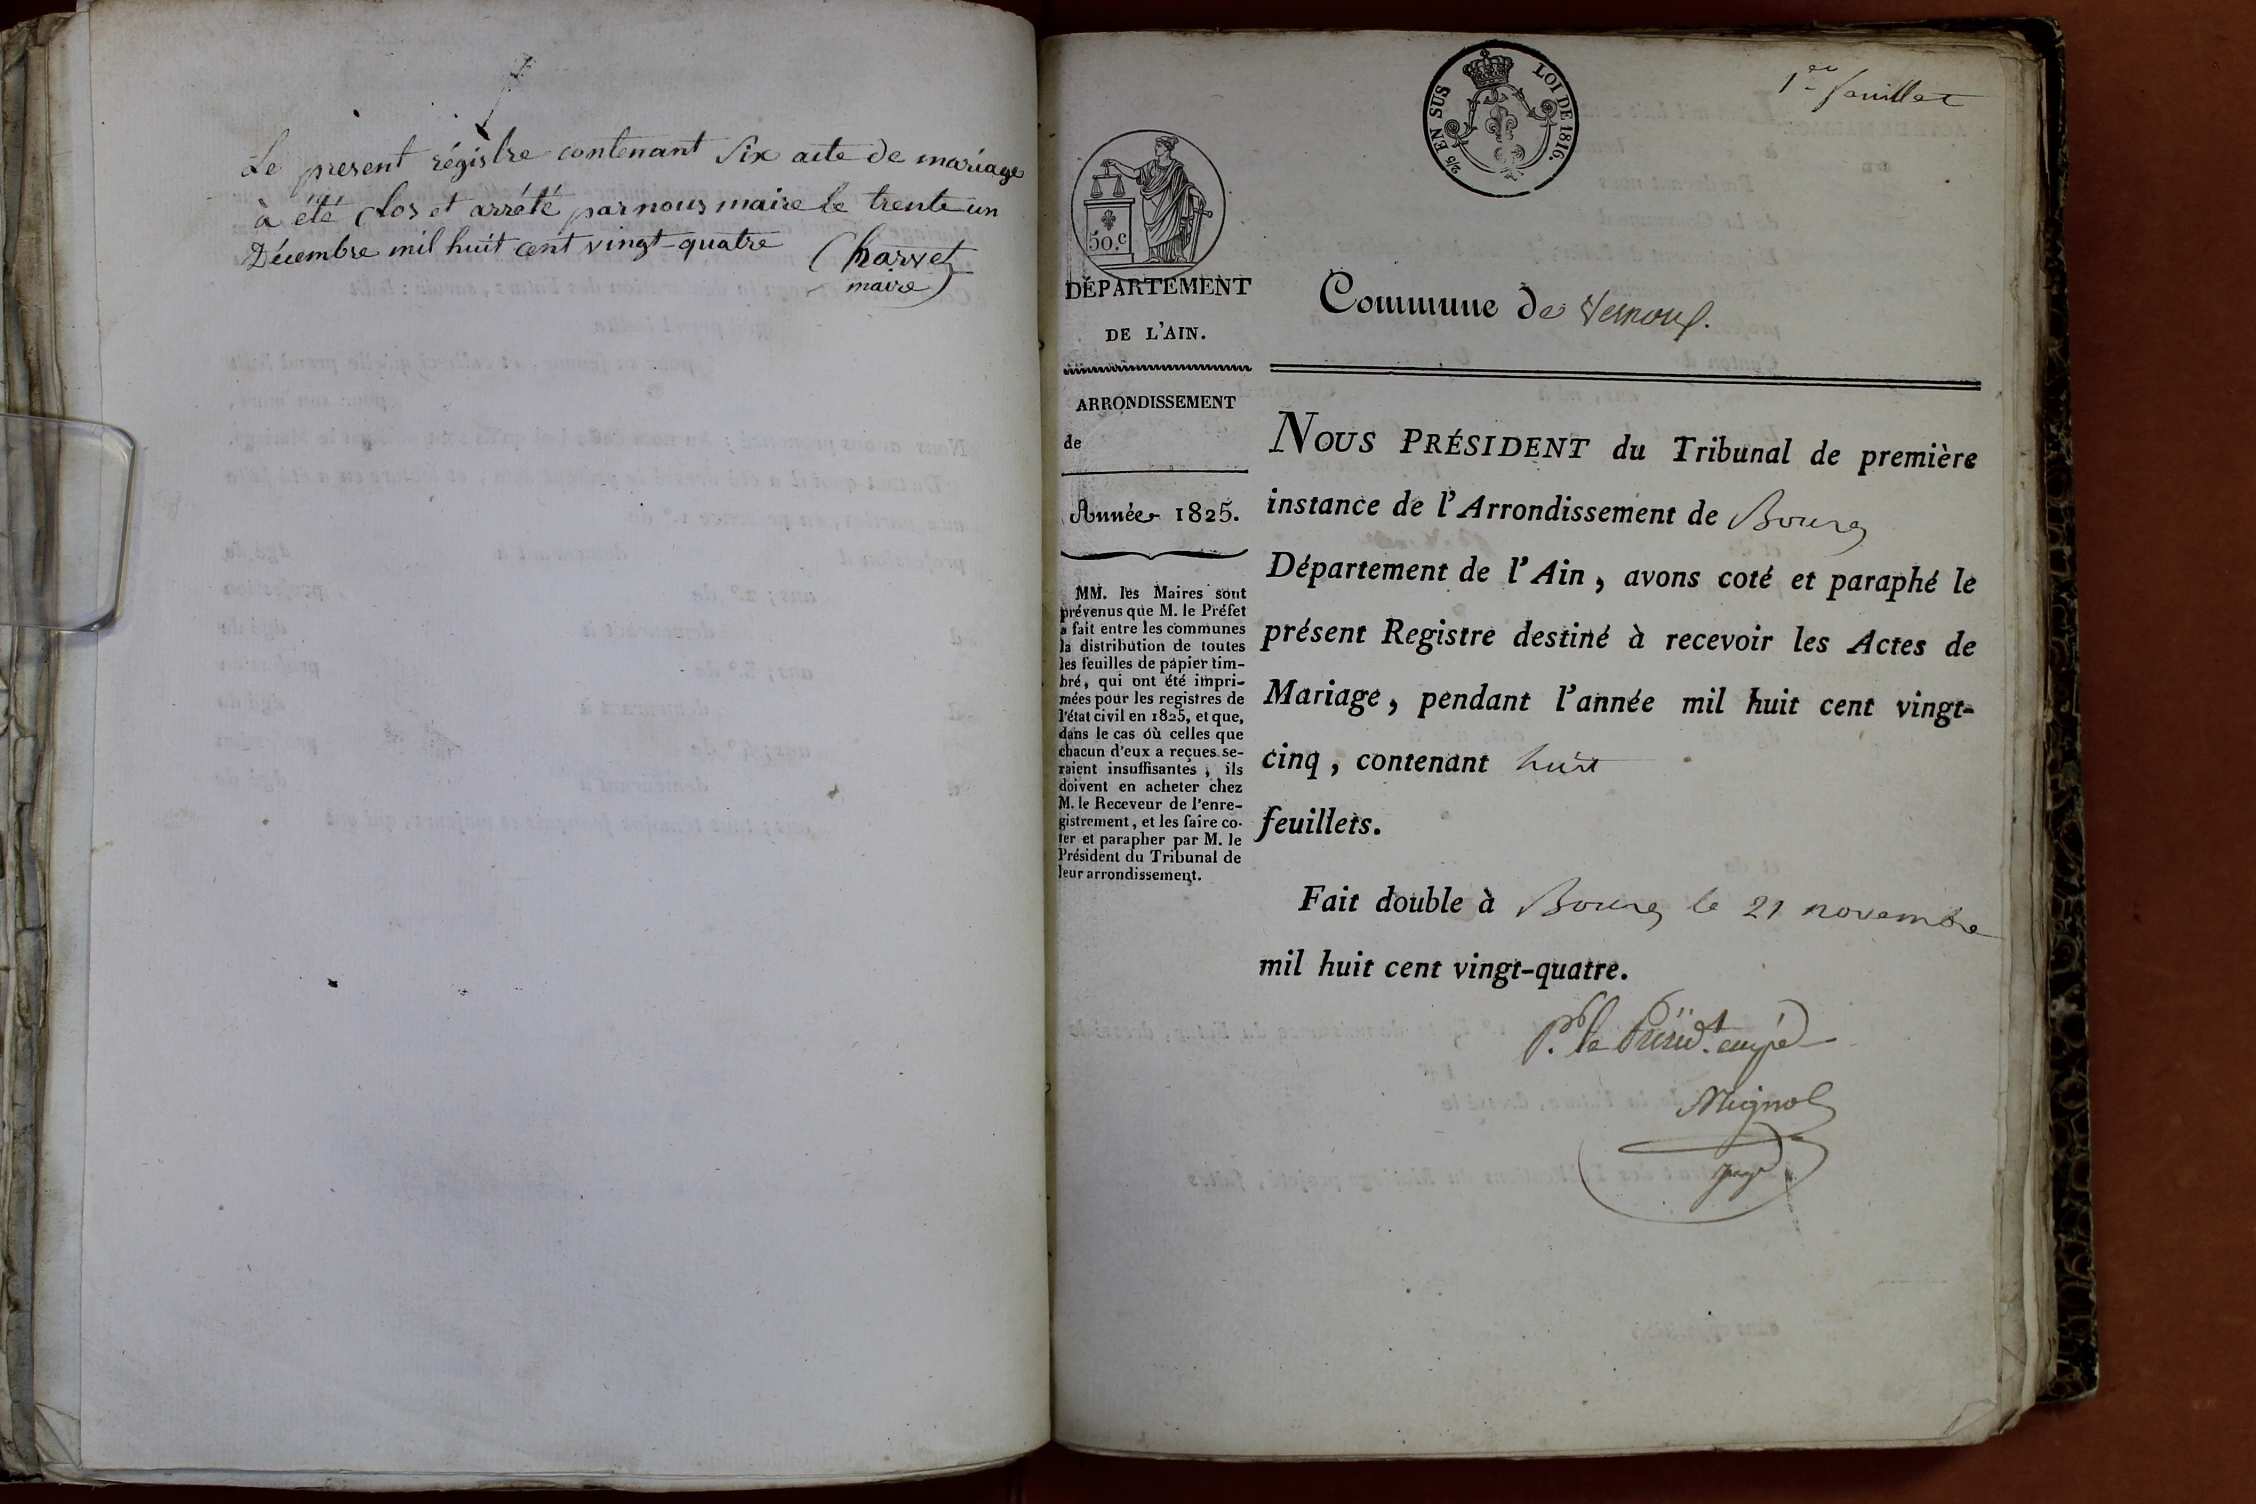 Le present régistre contenant Six acte de mariage
à été Clos et arrété par nous maire le trente un
Décembre mil huit cent vingt-quatre Charvet
maire
1er feuillet
2/5 EN SUS
LOI DE 1816.
50.c
DÉPARTEMENT
DE L'AIN.
ARRONDISSEMENT
de
Année 1825.
MM. les Maires sont
prévenus que M. le Préfet
a fait entre les communes
la distribution de toutes
les feuilles de papier tim-
bré, qui ont été impri-
mées pour les registres de
l'état civil en 1825, et que,
dans le cas où celles que
chacun d'eux a reçues se-
raient insuffisantes, ils
doivent en acheter chez
M. le Receveur de l'enre-
gistrement, et les faire co-
ter et parapher par M. le
Président du Tribunal de
leur arrondissement.
Commune de Vernoux.
NOUS PRÉSIDENT du Tribunal de première
instance de l'Arrondissement de Bourg
Département de l'Ain, avons coté et paraphé le
présent Registre destiné à recevoir les Actes de
Mariage, pendant l'année mil huit cent vingt-
cinq, contenant huit
feuillets.
Fait double à Bourg le 21 novembre
mil huit cent vingt-quatre.
Pr. le Présidt. empé
Mignot
juge